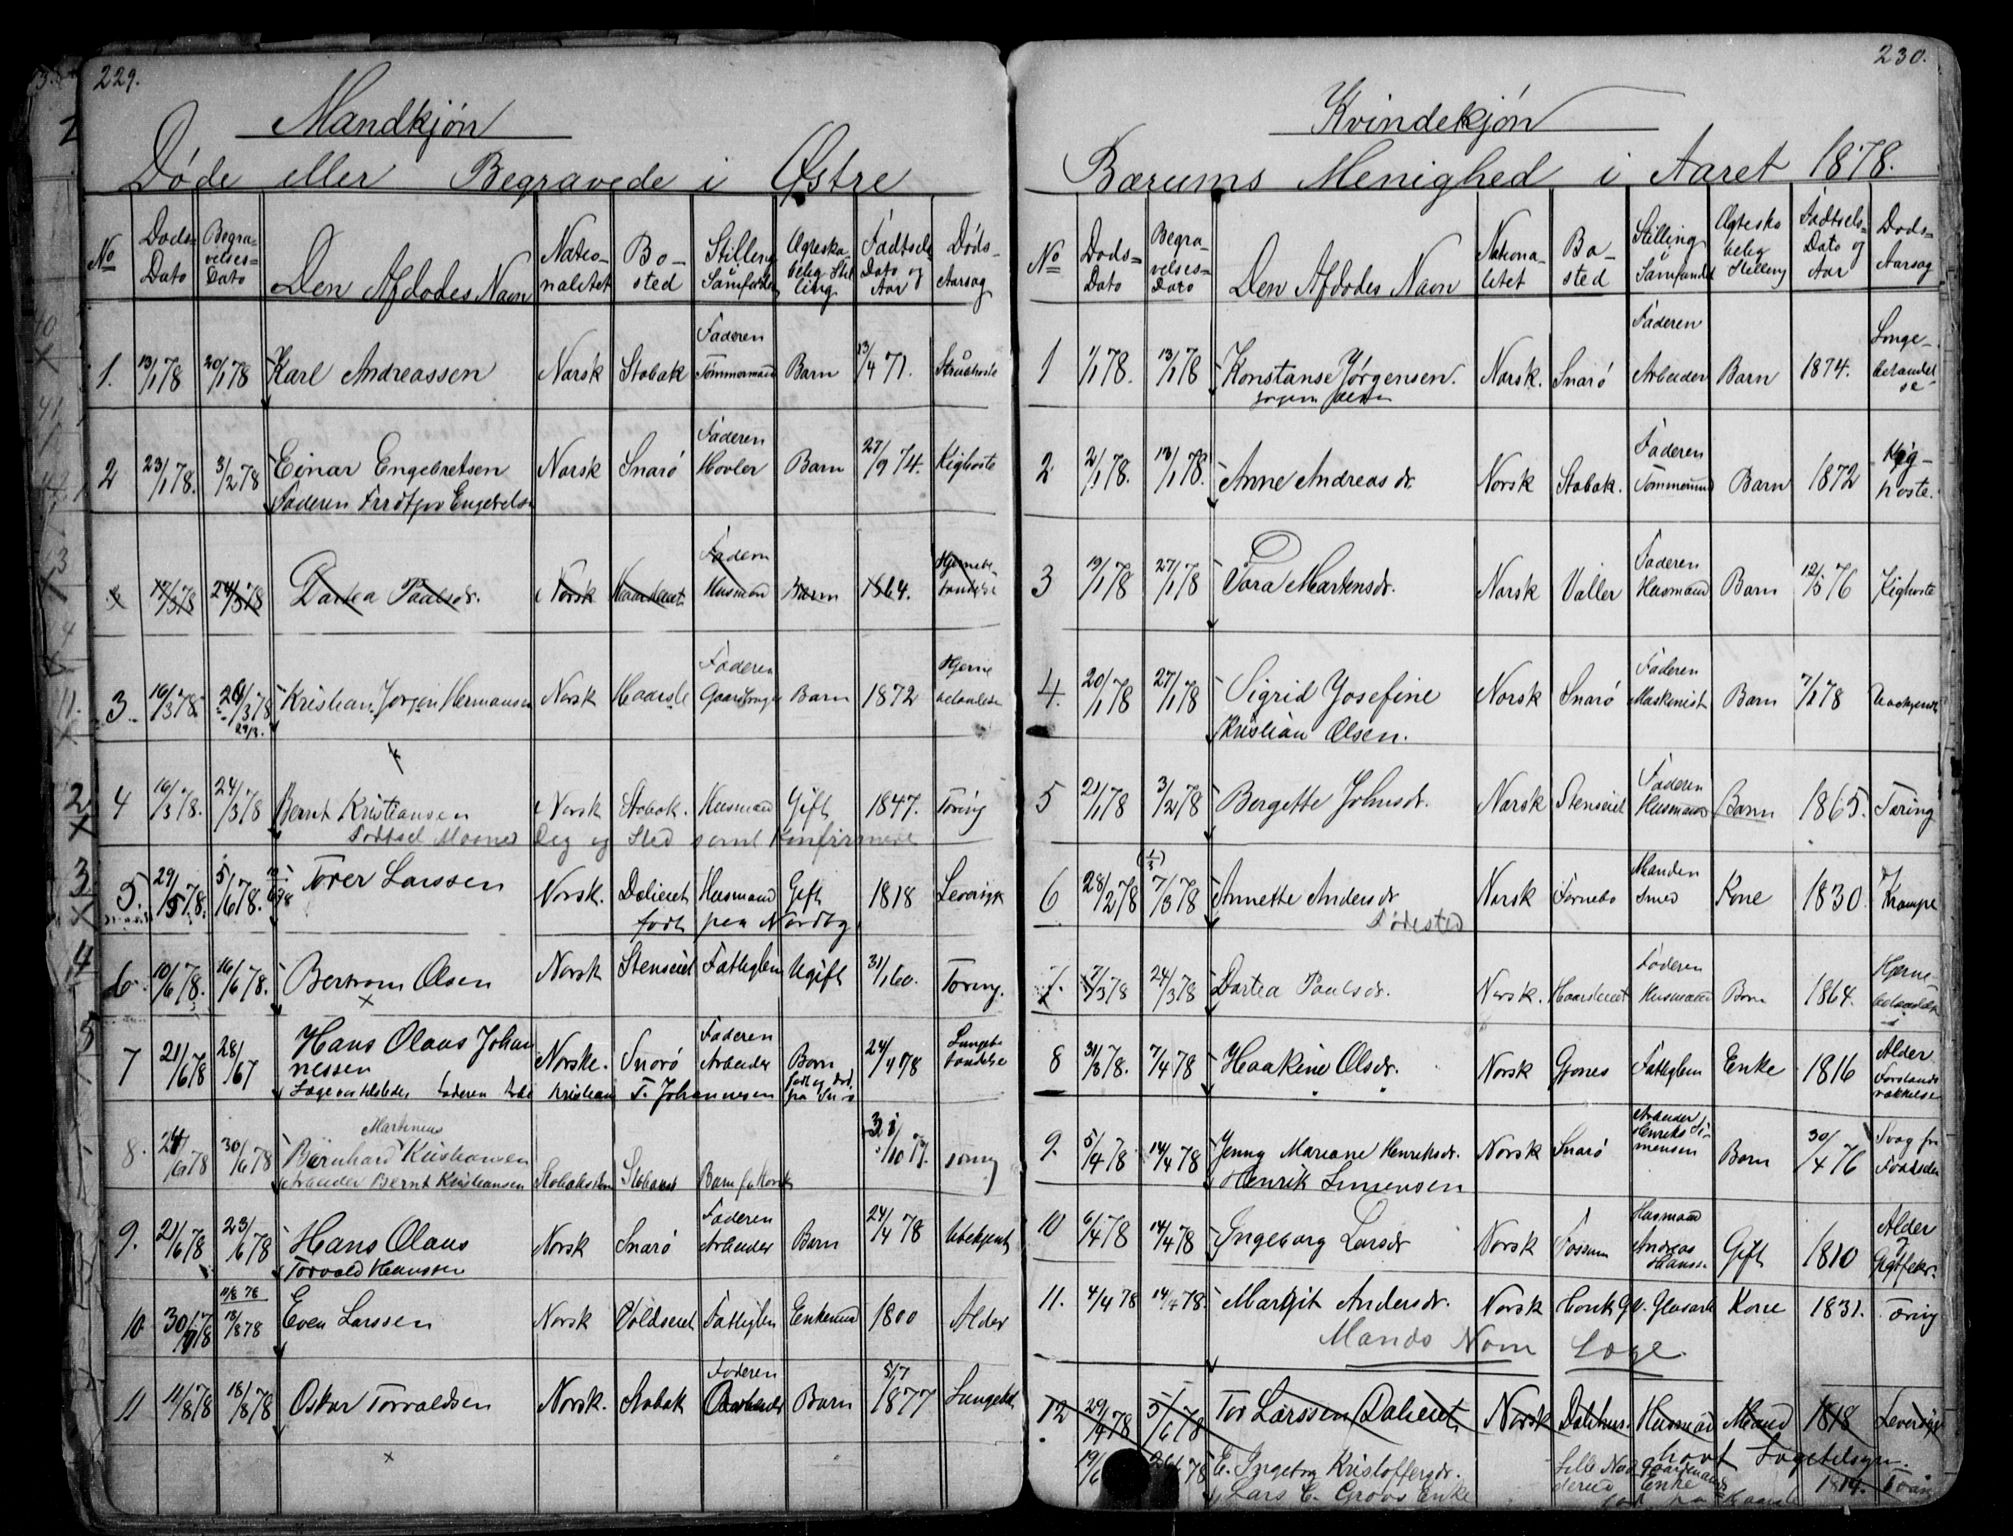 229.
Mandkjøn
Døde eller Begravede i Østre
No
Døds-Dato
Begra-velses-Dato
Den Afdødes Navn
Natio-nalitet
Bo-sted
Stilling i Samfundet
Ægteska-belig Stilling
Fødsels Dato og Aar
Døds-Aarsag
1. 13/1 78 20/1 78 Karl Andreassen Norsk Stabak Faderen Tømmermand Barn 13/4 71. Strubhoste
2 23/1 78. 3/2 78 Einar Engebretsen Norsk Snarø Faderen Høvler Barn 27/9 74. Kighoste
Faderen Engebretsen
17/3 78 24/3 78 Dortea Paalsdr. Norsk Faderen Husmand Barn 1864.
3. 16/3 78. 24/3 78 Kristian Jørgen Hermansen Norsk Faderen Barn 1872 Hjerne
4 16/3 78. 24/3 78 Bernt Kristiansen Norsk Stabak. Husmand Gift 1847. Tæring
Dag og Sted samt Konfirmeret
5. 29/5 78. 5/6 78. Torer Larssen Norsk. Dalieiet Husmand Gift 1818 Leversyk
født paa Nordby
6. 10/6 78. 16/6 78. Bertram Olsen Norsk Stenseiet Fattiglem Ugift 31/1 60. Tæring.
7 21/6 78 28/6 7 Hans Olaus Johan
nessen Norske. Snarø Faderen Arbeider Barn 24/4 78
Kristian T. Johannesen
8. 24/6 78 30/6 78 Martinus
Bernhard Kristiansen
Arbeider Bernt Kristiansen
9. 21/6 78 23/6 78 Hans Olaus Norsk Snarø Faderen Arbeider Barn 24/4 78 Ubekjendt
Torvald Hanssen
10 30/7 78 11/8 78 Even Larssen Norsk Voldseiet Fattiglem Enkemand 1800 Alder
11 11/8 78 18/8 78 Oskar Torvaldsen Norsk. Stabak Faderen Barn 5/7 1877
230.
Kvindekjøn
Bærums Menighed i Aaret 1878.
No
Døds-Dato
Begra-velses-Dato
Den Afdødes Navn
Nationa-litet
Bo-sted
Stilling i Samfundet
Ægteska-belig Stilling
Fødsels-Dato og Aar
Døds-Aarsag
1 1/1 78. 13/1 78 Konstanse Jørgensen. Norsk. Snarø Faderen Arbeider Barn 1874.
2 2/1 78. 13/1 78. Anne Andreasdr. Norsk Stabak. Faderen Tømmermand Barn 1872 Kig-hoste.
3 19/1 78 27/1 78 Tora Martensdr. Norsk Valler Faderen Husmand Barn 12/5 76 Kighoste
4. 20/1 78 27/1 78 Sigrid Josefine Norsk Snarø Faderen Maskinist Barn 7/1 78 Ubekjendt
Kristian Olsen.
5 21/1 78 3/2 78 Bergette Johnsdr. Norsk Stenseiet Faderen Husmand Barn 1865. Tæring
6 28/2 78 7/3 78 Annette Andersdr Norsk Fornebo Manden Smed Kone 1830. Krampe
Fødested
7. 7/3 78 24/3 78 Dortea Paalsdr. Norsk. Faderen Husmand Barn 1864. Hjerne-
8 31/3 78. 7/4 78 Haakine Olsdr. Norsk Fattiglem Enke 1816 Alder
9. 5/4 78 14/4 78 Jenny Mariane Henriksdr. Norsk Snarø Arbeider Henrik Simensen Barn 30/4 76 Svag fra Fødselen
Henrik Simensen
10 6/4 78 14/4 78 Ingeborg Larsdr Norsk Fossum Husmand Andreas Hansen Gift 1810 Alder
11. 4/4 78 14/4 78. Margit Andersdr. Norsk Kone 1831. Tæring
Mands Navn Læge
12 29/4 78 5/6 78 Tor Larssen Dalieiet Norsk Husmand Mand 1818 Leversyge
E. Ingeborg Kristoffersdr. Lille
Lars C. Grovs Enke Enke 1814.